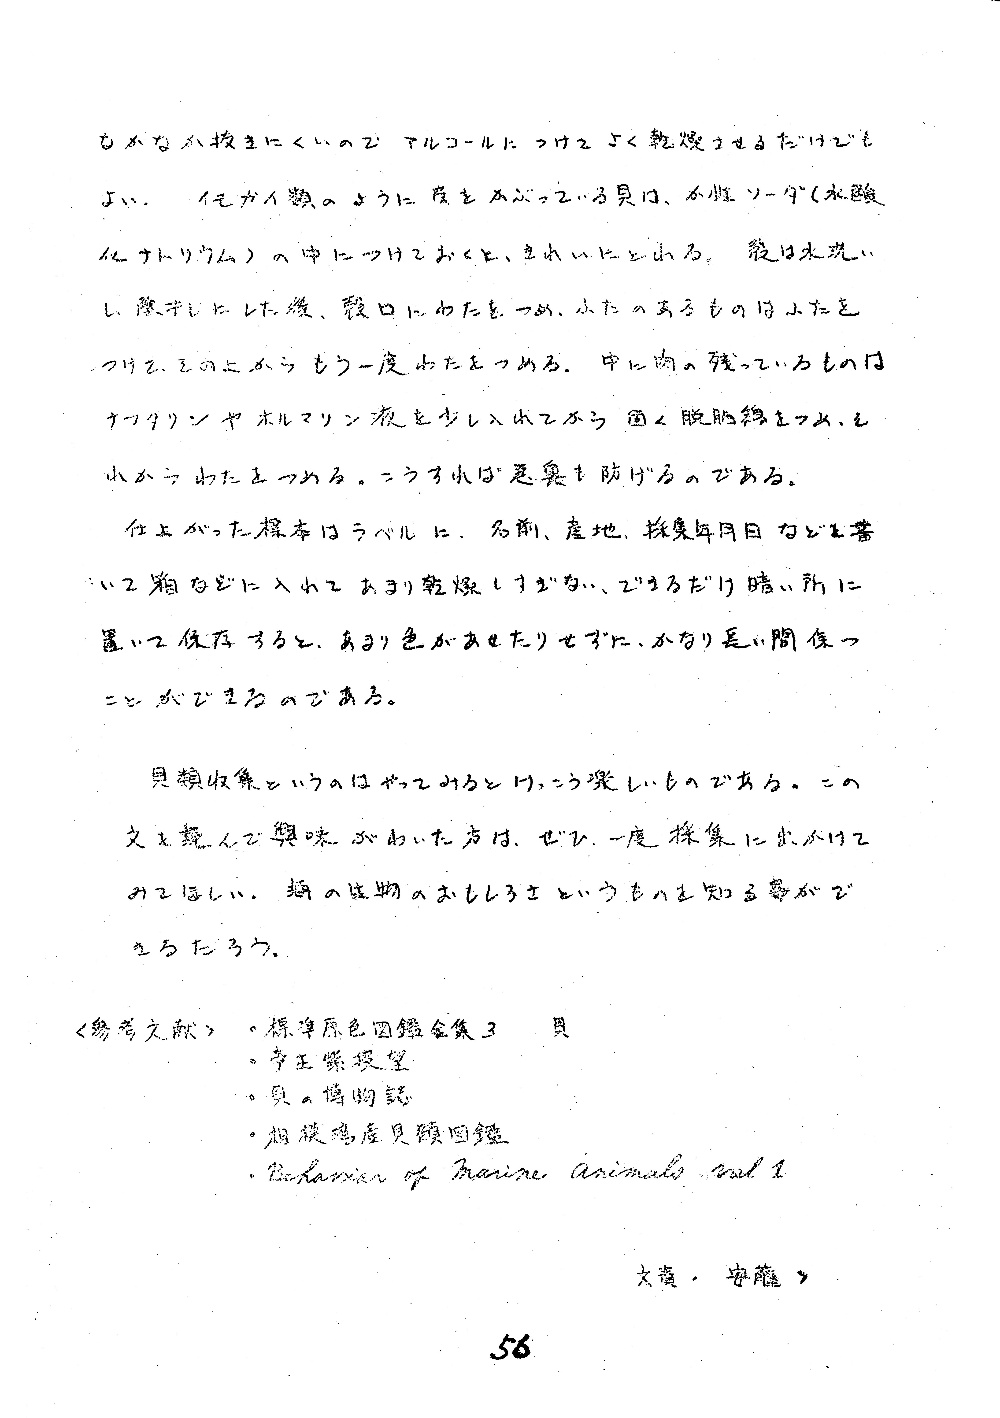 もかなか抜きにくいので アルコールに つけて よく乾燥させるだけでも
よい. イモガイ類のように皮をかぶっている貝は、か性ソーダ(水酸
化ナトリウム)の中につけておくと、きれいにとれる。 殻は水洗い
し、陰干しにした後、殻口にわたをつめ、ふたのあるものはふたを
つけて、その上から もう一度わたをつめる。中に肉の残っているものは
ナフタリンやホルマリン液を少し入れてから 固く脱脂綿をつめ、そ
れからわたをつめる。こうすれば悪臭も防げるのである。
仕上がった標本はラベルに、名前、産地、採集年月日などを書
いて箱などに入れて あまり乾燥しすぎない、できるだけ暗い所に
置いて保存すると、あまり色があせたりせずに、かなり長い間保つ
ことができるのである。
貝類収集というのはやってみるとけっこう楽しいものである。この
文を読んで興味がわいた方は、ぜひ、一度採集に出かけて
みてほしい. 海の生物のおもしろさというものを知る事がで
きるだろう。
〈参考文献〉 ・標準原色図鑑全集3 貝
・貝の博物誌
・相模湾産貝類図鑑
・Behavior of Marine Animals vol 1
文責・ 安藤
56